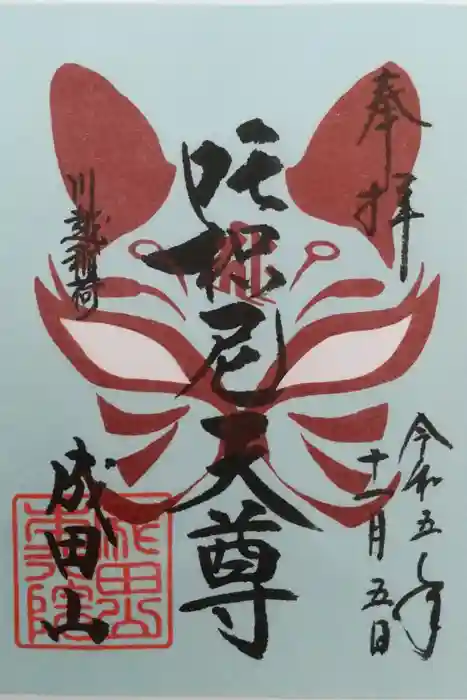 奉拝
令和五年
十一月五日
吒枳尼天尊
川越稲荷
成田山